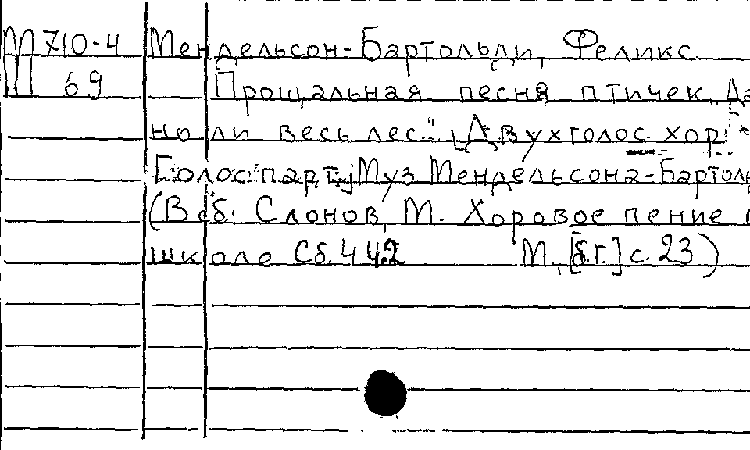 М 710-4 Мендельсон-Бартольди, Феликс
М 69 Прощальная песня птичек „Да
но ли весь лес". Двухголос. хор
Голос. парт. Муз Мендельсона-Бартоль
(В сб: Слонов, М. Хоровое пение в
школе Сб. 4 М., [б.г.] с. 23)